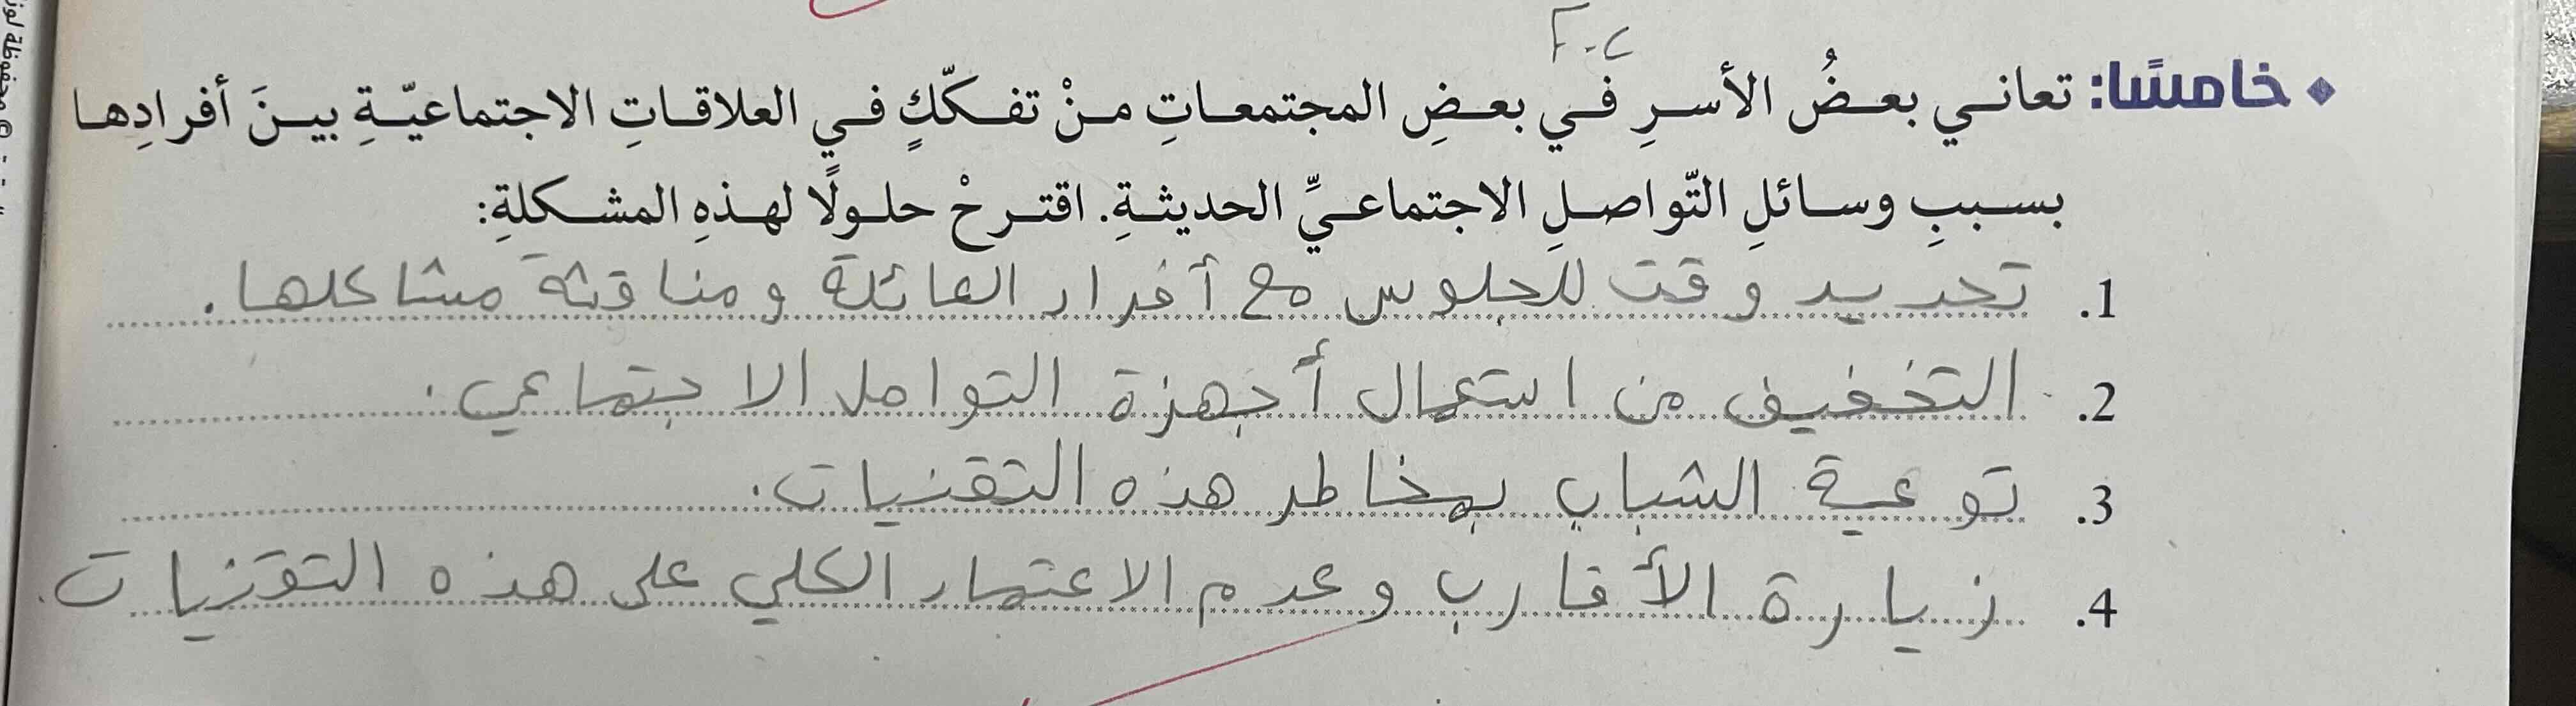 خامسًا: تعاني بعضُ الأسرِ في بعضِ المجتمعاتِ منْ تفكّكٍ في العلاقاتِ الاجتماعيّةِ بينَ أفرادِها
بسببِ وسائلِ التّواصلِ الاجتماعيِّ الحديثةِ. اقترحْ حلولًا لهذهِ المشكلةِ:
1. تحديد وقت للجلوس مع أفراد العائلة ومناقشة مشاكلها.
2. التخفيف من استعمال أجهزة التواصل الاجتماعي.
3. توعية الشباب بمخاطر هذه التقنيات.
4. زيارة الأقارب وعدم الاعتماد الكلي على هذه التقنيات.